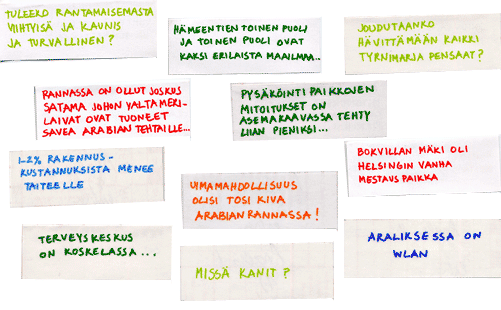 TULEEKO RANTAMAISEMASTA
VIIHTYISÄ JA KAUNIS
JA TURVALLINEN?
HÄMEENTIEN TOINEN PUOLI
JA TOINEN PUOLI OVAT
KAKSI ERILAISTA MAAILMAA...
JOUDUTAANKO
HÄVITTÄMÄÄN KAIKKI
TYRNIMARJA PENSAAT?
RANNASSA ON OLLUT JOSKUS
SATAMA JOHON VALTAMERI-
LAIVAT OVAT TUONEET
SAVEA ARABIAN TEHTAILLE...
PYSÄKÖINTI PAIKKOJEN
MITOITUKSET ON
ASEMAKAAVASSA TEHTY
LIIAN PIENIKSI...
1-2% RAKENNUS-
KUSTANNUKSISTA MENEE
TAITEELLE
UIMAMAHDOLLISUUS
OLISI TOSI KIVA
ARABIANRANNASSA!
BOKVILLAN MÄKI OLI
HELSINGIN VANHA
MESTAUSPAIKKA
TERVEYSKESKUS
ON KOSKELASSA...
MISSÄ KANIT?
ARALIKSESSA ON
WLAN